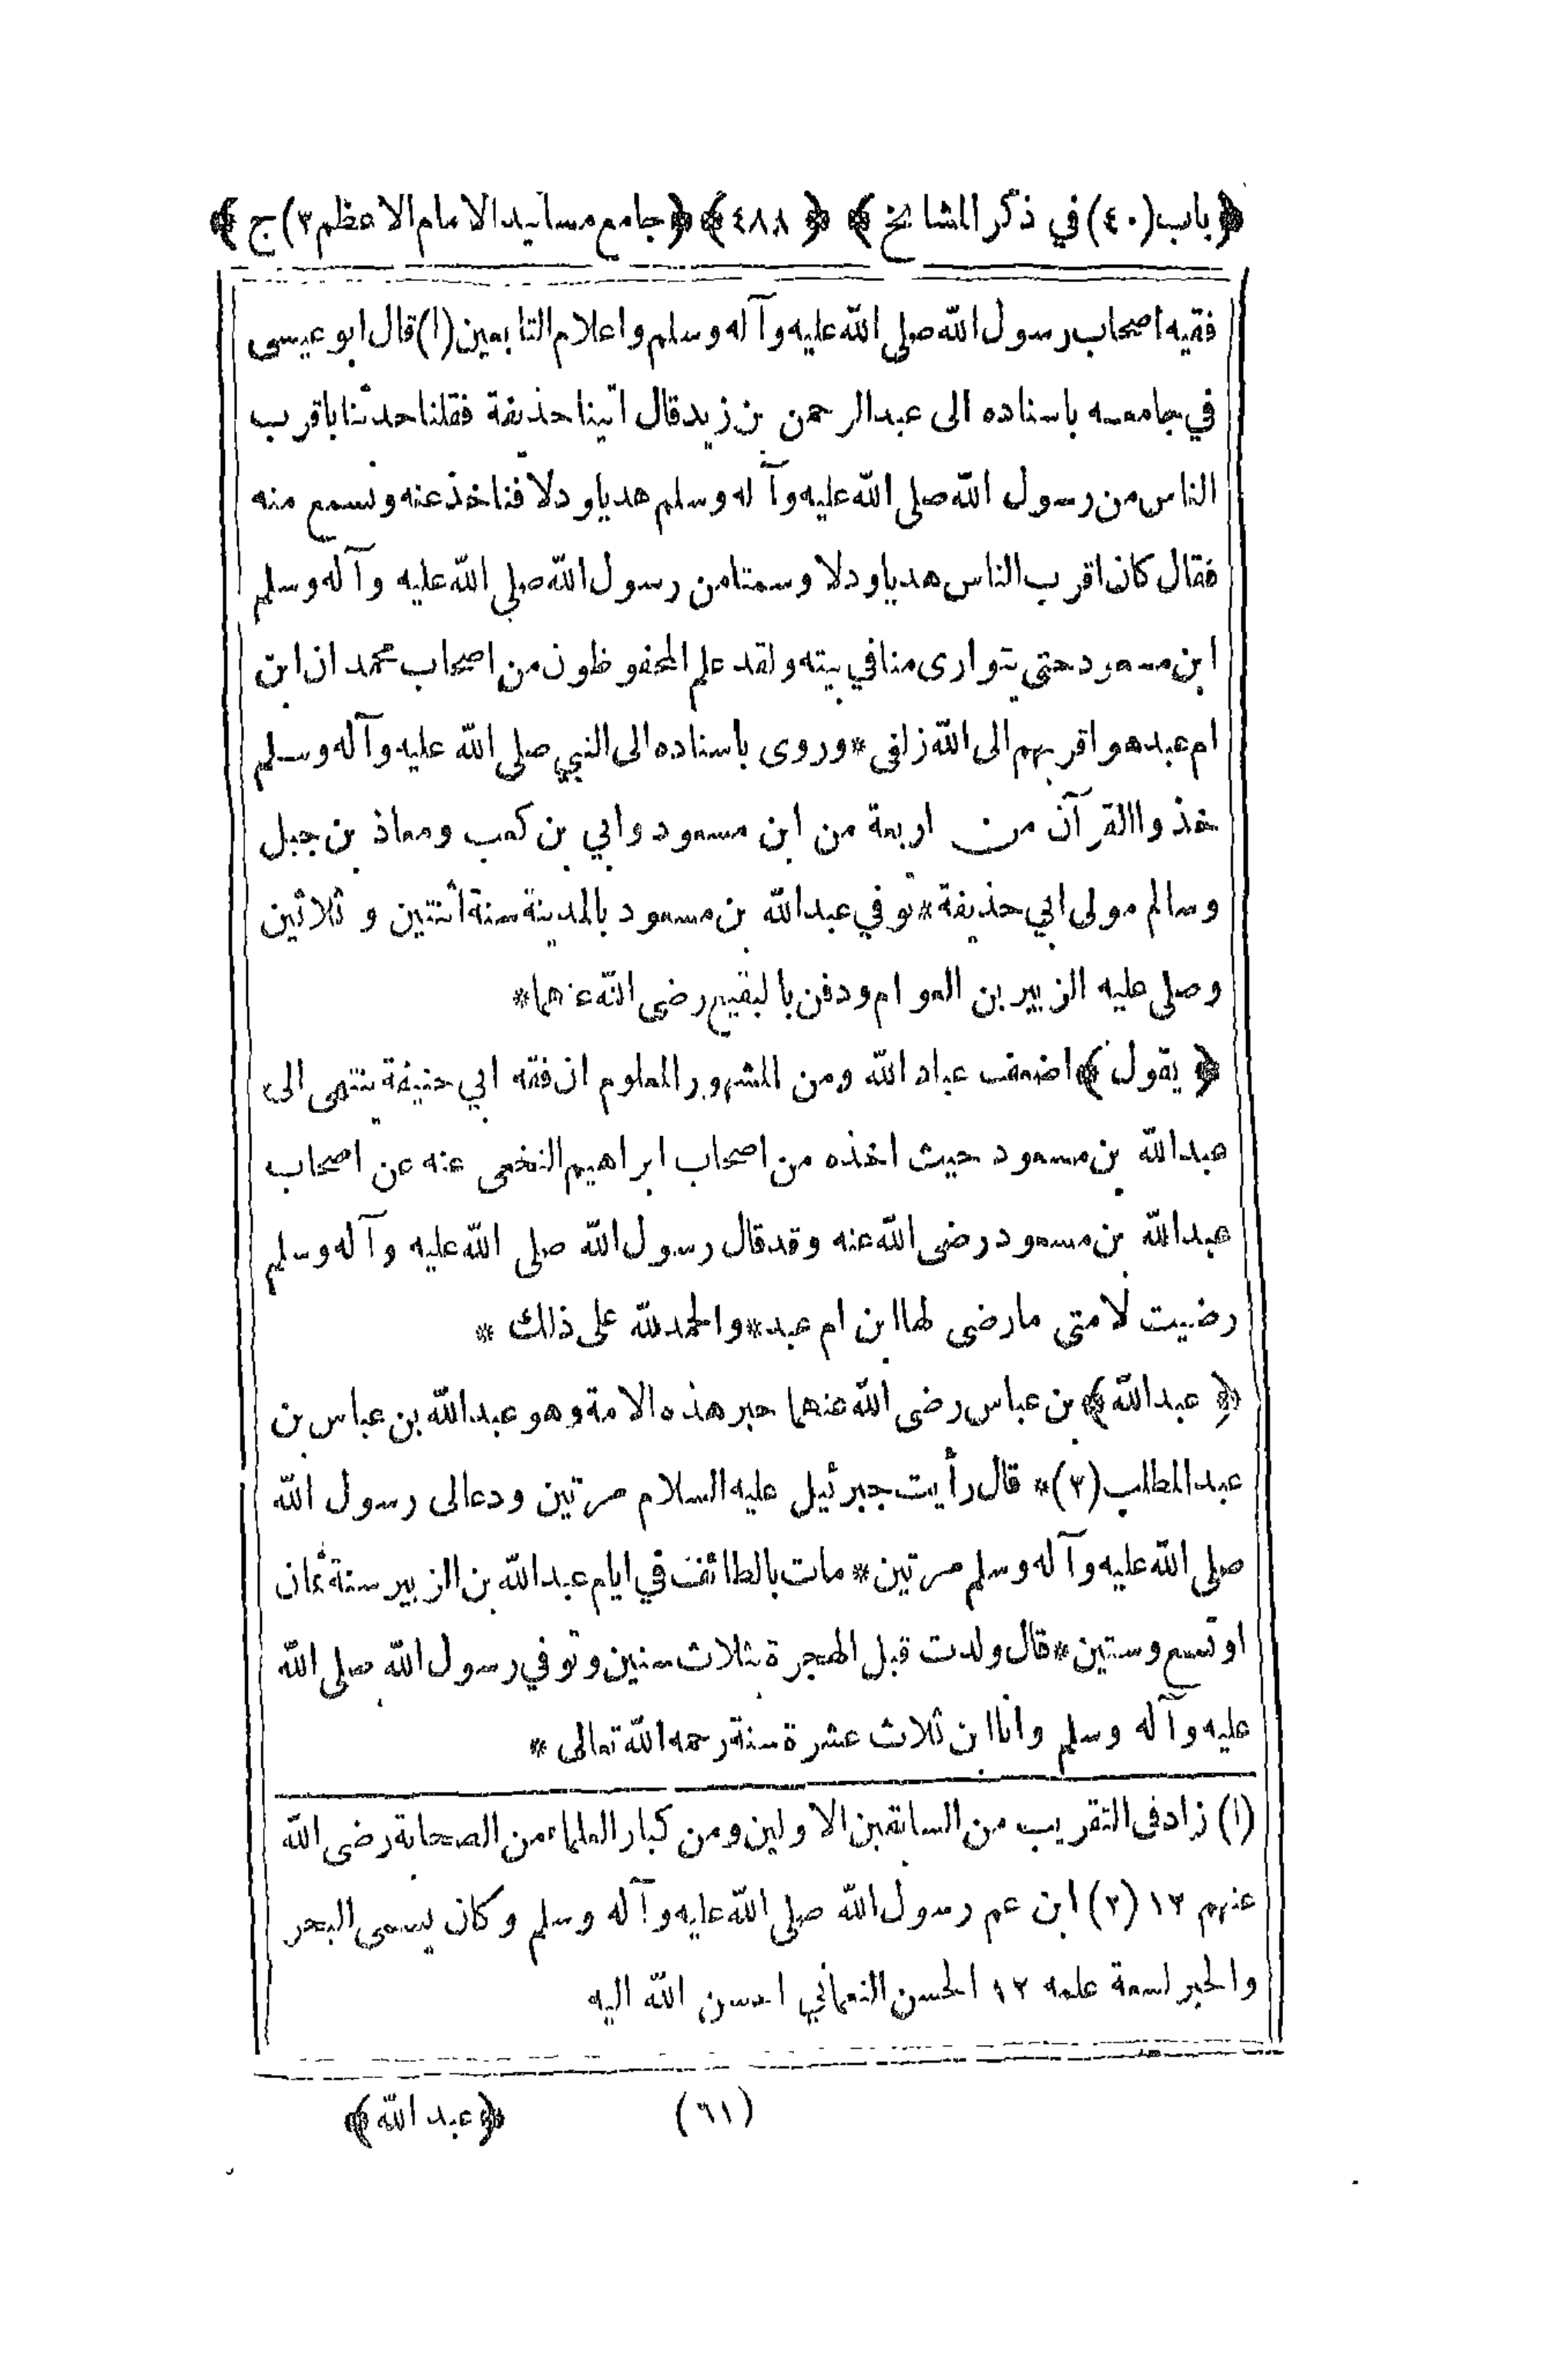 ﴿باب(٤٠)في ذكر المشايخ﴾ ﴿٤٨٨﴾ ﴿جامع مسانيد الامام الاعظم ٢)ج﴾
فقيه اصحاب رسول الله صلى الله عليه وآله وسلم واعلام التابعين(١)قال ابو عيسى
في جامعه باسناده الى عبدالرحمن بن زيد قال اتينا حذيفة فقلنا حدثنا باقرب
الناس من رسول الله صلى الله عليه وآله وسلم هديا ودلا فناخذ عنه ونسمع منه
فقال كان اقرب الناس هديا ودلا وسمتا من رسول الله صلى الله عليه وآله وسلم
ابن مسعود حتى يتوارى منا في بيته ولقد علم المحفوظون من اصحاب محمد ان ابن
ام عبد هو اقربهم الى الله زلفى * وروى باسناده الى النبي صلى الله عليه وآله وسلم
خذوا القرآن من اربعة من ابن مسعود وابي بن كعب ومعاذ بن جبل
وسالم مولى ابي حذيفة * توفي عبدالله بن مسعود بالمدينة سنة أثنتين وثلاثين
وصلى عليه الزبير بن العوام ودفن بالبقيع رضى الله عنهما *
﴿يقول﴾ اضعف عباد الله ومن المشهور المعلوم ان فقه ابي حنيفة ينتهى الى
عبدالله بن مسعود حيث اخذه من اصحاب ابراهيم النخعى عنه عن اصحاب
عبدالله بن مسعود رضى الله عنه وقد قال رسول الله صلى الله عليه وآله وسلم
رضيت لامتى مارضى لها ابن ام عبد * والحمدلله على ذلك *
﴿عبدالله﴾ بن عباس رضى الله عنهما حبر هذه الامة وهو عبدالله بن عباس بن
عبدالمطلب(٢)* قال رأيت جبرئيل عليه السلام مرتين ودعالى رسول الله
صلى الله عليه وآله وسلم مرتين * مات بالطائف في ايام عبدالله بن الزبير سنة ثمان
او تسع وستين * قال ولدت قبل الهجرة بثلاث سنين وتوفي رسول الله صلى الله
عليه وآله وسلم وانا ابن ثلاث عشرة سنة رحمه الله تعالى *
(١) زاد فى التقريب من السابقين الاولين ومن كبار العلماء من الصحابة رضى الله
عنهم ١٢ (٢) ابن عم رسول الله صلى الله عليه وآله وسلم وكان يسمى البحر
والحبر لسعة علمه ١٢ الحسن النعماني احسن الله اليه
(٦١) ﴿عبدالله﴾